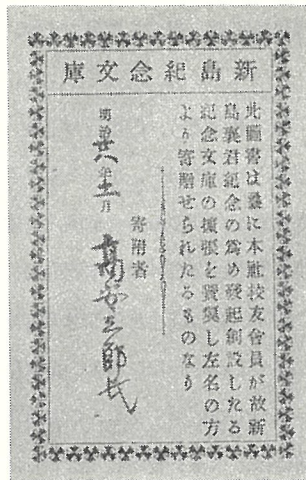 新島紀念文庫
此圖書は曩に本社校友會員が故新
島襄君紀念の爲め發起創設したる
紀念文庫の擴張を賛襄し左名の方
より寄贈せられたるものなり
寄附者
明治廿八年 月
三郎氏